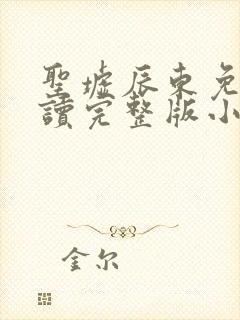 聖墟辰東免
讀完整版小
金尔